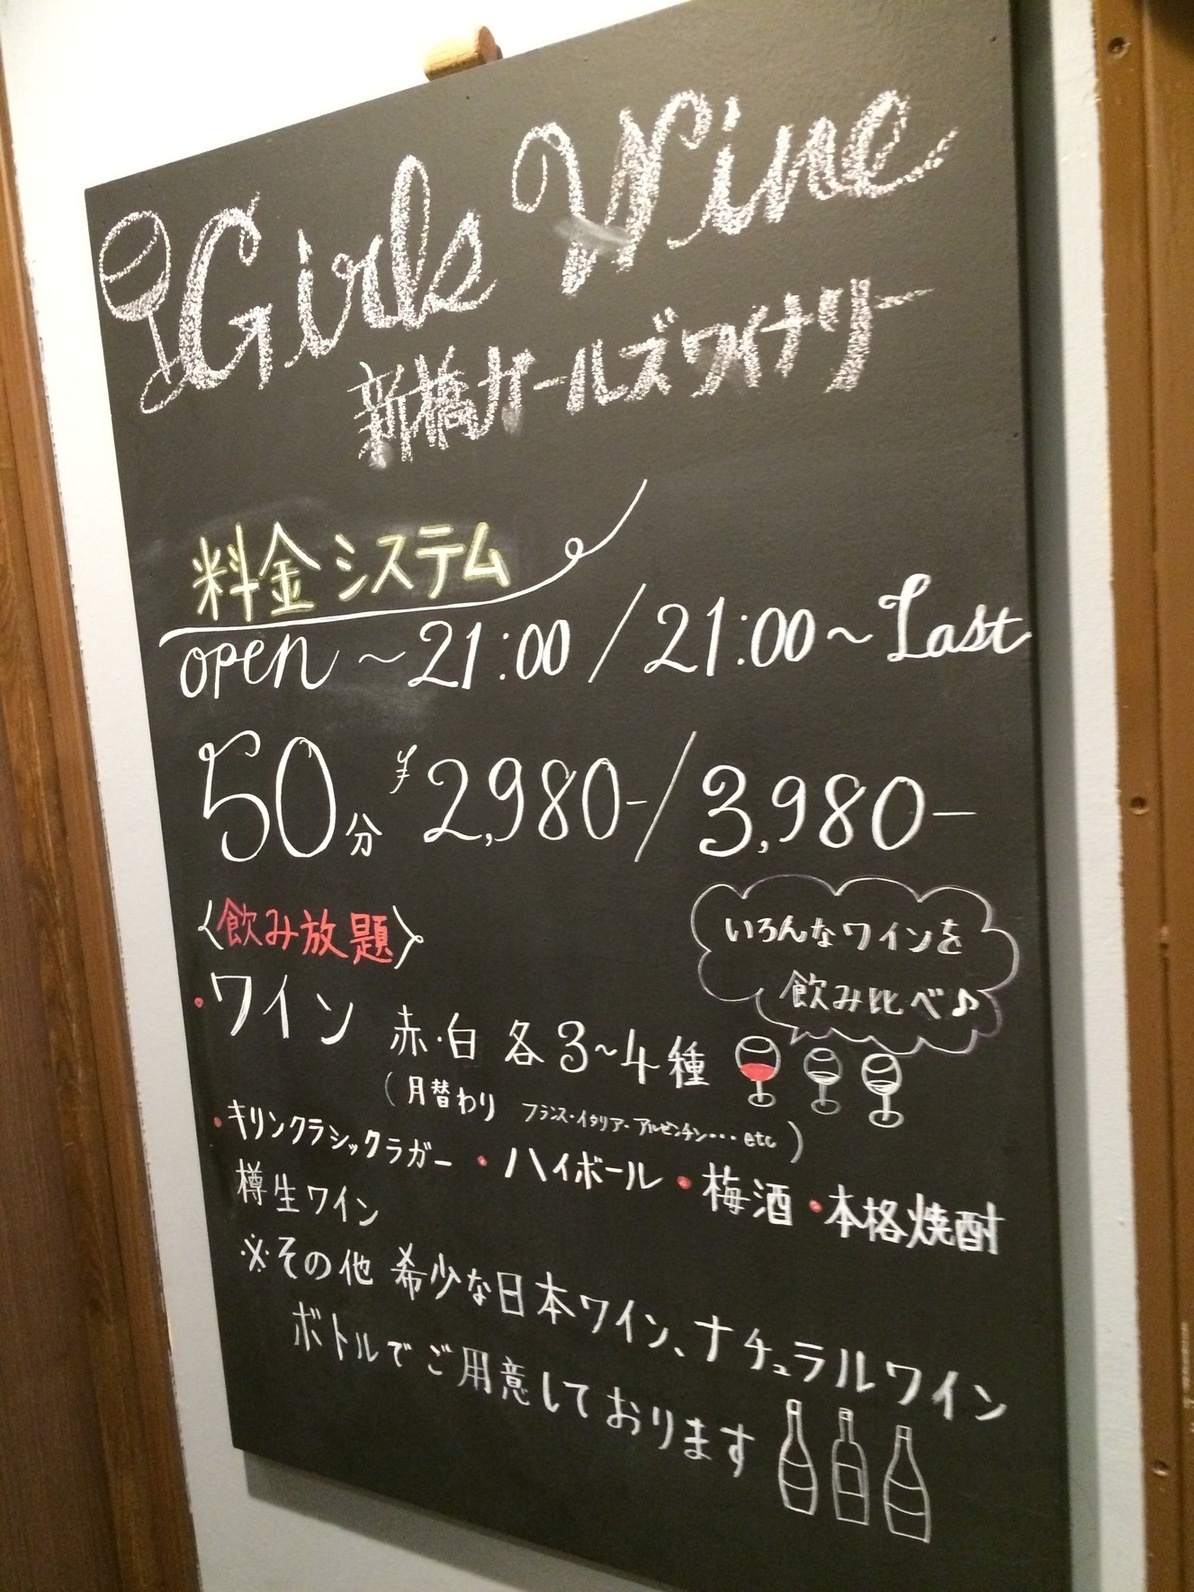 Girls Wine
新橋ガールズワイナリー
料金システム
open~21:00/21:00~Last
50分 ¥2,980-/3,980-
〈飲み放題〉
いろんなワインを
飲み比べ♪
・ワイン 赤・白 各3~4種
(月替わり フランス・イタリア・アルゼンチン…etc)
・キリンクラシックラガー・ハイボール・梅酒・本格焼酎
樽生ワイン
※その他 希少な日本ワイン、ナチュラルワイン
ボトルでご用意しております